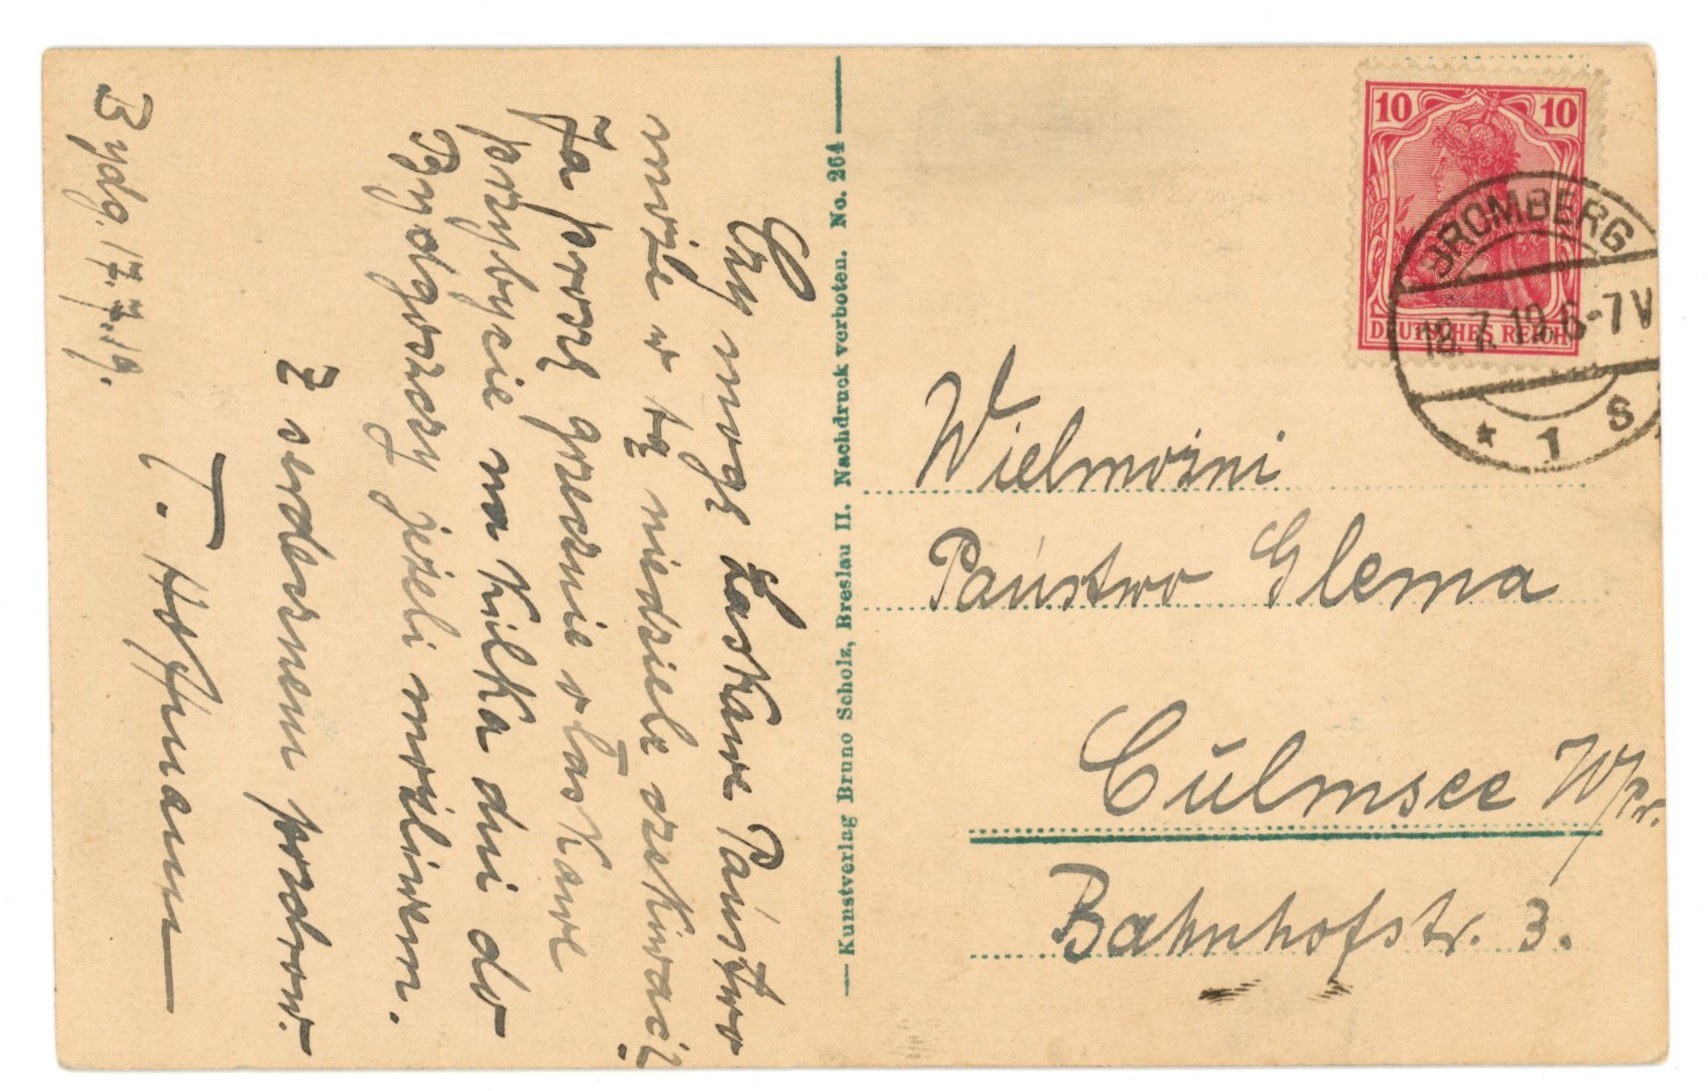 Bydg. 17.7.19.
Czy mogę Łaskawe Państwo
może w tę niedziele oczekiwać?
Ja proszę grzecznie o łaskawe
przybycie na kilka dni do
Bydgoszczy jeżeli możliwem.
Z serdecznem pozdrow.
T. Hoffmann
Kunstverlag Bruno Scholz, Breslau II. Nachdruck verboten. No. 264
10 10
DEUTSCHES REICH
BROMBERG
18.7.19.6-7V
* 1 s
Wielmożni
Państwo Glema
Culmsee W/Pr.
Bahnhofstr. 3.